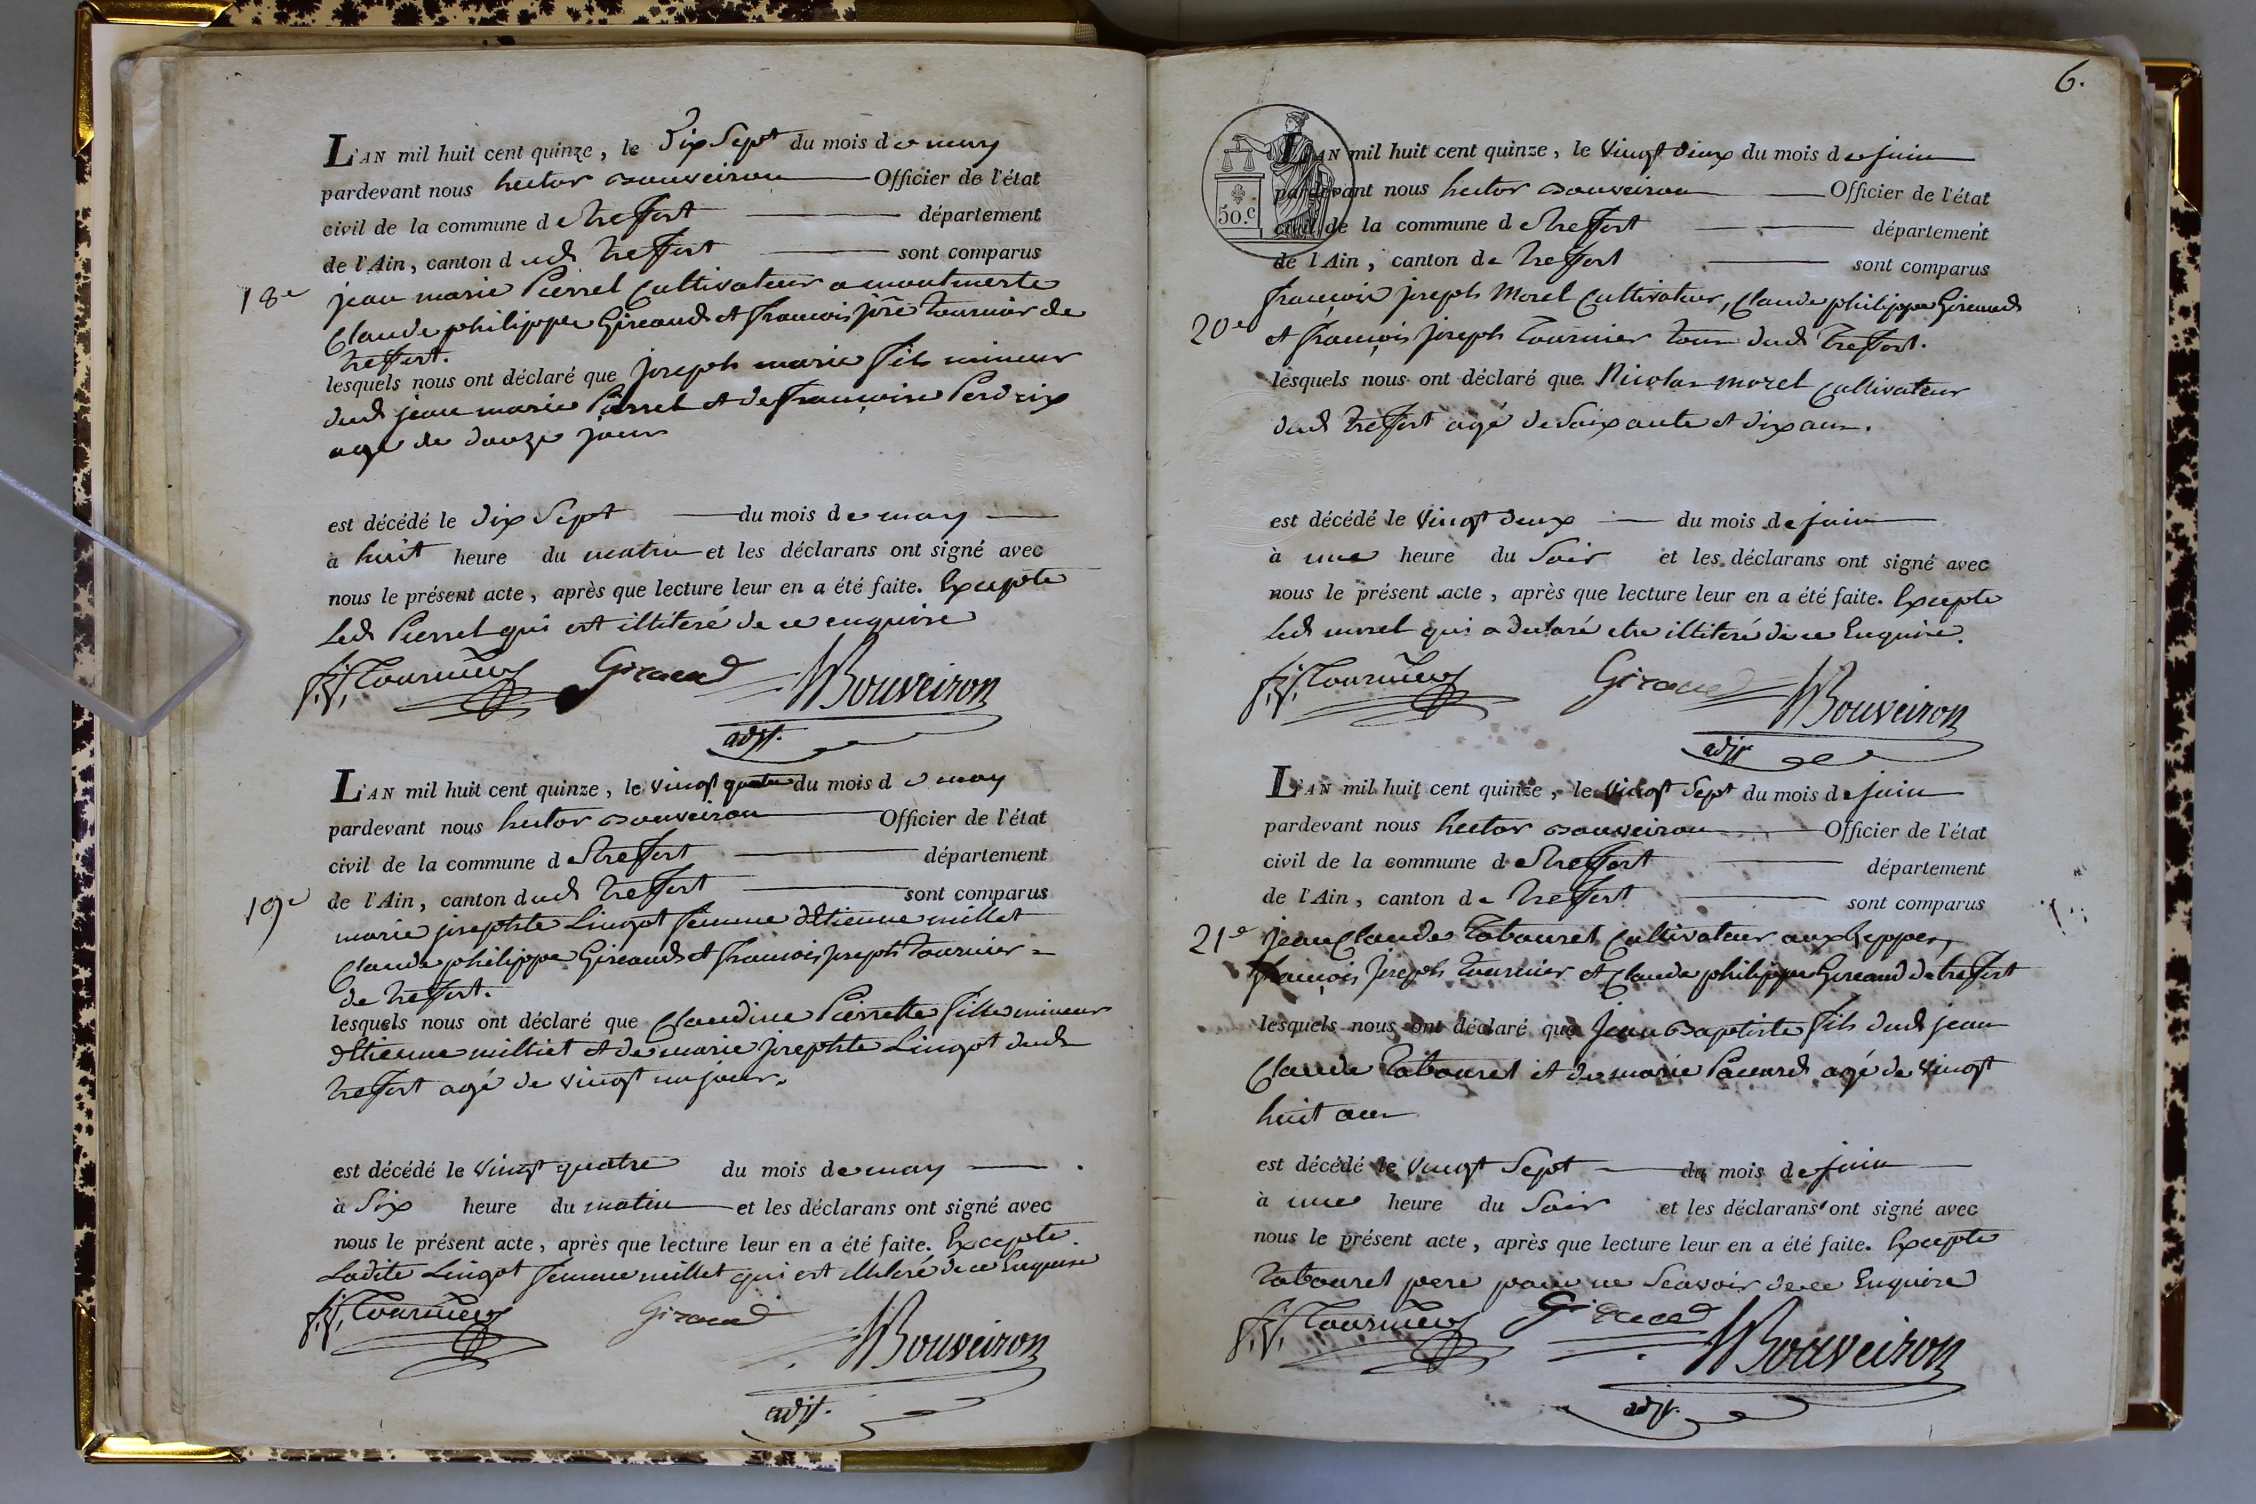 18e
L'AN mil huit cent quinze, le Dix Sept du mois de may
pardevant nous hector Bouveiron Officier de l'état
civil de la commune de treffort département
de l'Ain, canton dud treffort sont comparus
jean marie Pierrel Cultivateur a montmerle
Claude philippe Gireaud et francois jph tournier de
treffort.
lesquels nous ont déclaré que joseph marie fils mineur
dud jean marie Pierrel et de françoise Perdrix
agé de douze jours
est décédé le dix Sept du mois de may
à huit heure du matin et les déclarans ont signé avec
nous le présent acte, après que lecture leur en a été faite. Excepté
Led Pierrel qui est illiteré de ce enquire
f. j. Tournier Giraud HBouveiron
adjt.
19e
L'AN mil huit cent quinze, le vingt quatre du mois de may
pardevant nous hector Bouveiron Officier de l'état
civil de la commune de treffort département
de l'Ain, canton dud treffort sont comparus
marie josephte Lingot femme d'Etienne millet
Claude philippe Gireaud et francois joseph tournier
de treffort.
lesquels nous ont déclaré que Claudine Pierrette fille mineur
d'Etienne milliet et de marie josephte Lingot dud
treffort agé de vingt un jour.
est décédé le vingt quatre du mois de may
à Six heure du matin et les déclarans ont signé avec
nous le présent acte, après que lecture leur en a été faite. Excepté
Ladite Lingot femme millet qui est illiteré de ce Enquise
f. j. Tournier Giraud HBouveiron
adjt.
6.
50.c
20e
L'AN mil huit cent quinze, le Vingt deux du mois de juin
pardevant nous hector Bouveiron Officier de l'état
civil de la commune de treffort département
de l'Ain, canton de treffort sont comparus
françois joseph Morel Cultivateur, Claude philippe Gireaud
et françois joseph tournier tous dud treffort.
lesquels nous ont déclaré que Nicolas morel Cultivateur
dud treffort agé de Soixante et dix ans.
est décédé le Vingt deux du mois de juin
à une heure du Soir et les déclarans ont signé avec
nous le présent acte, après que lecture leur en a été faite. Excepté
Led morel qui a declaré etre illiteré de ce Enquire.
f. j. Tournier Giraud HBouveiron
adjt
21e
L'AN mil huit cent quinze, le Vingt Sept du mois de juin
pardevant nous hector Bouveiron Officier de l'état
civil de la commune de treffort département
de l'Ain, canton de treffort sont comparus
jean Claude Tabouret Cultivateur aux
françois joseph tournier et Claude philippe Gireaud de treffort
lesquels nous ont déclaré que Jean Baptiste fils dud jean
Claude Tabouret et de marie Pacard agé de Vingt
huit ans
est décédé le Vingt Sept du mois de juin
à une heure du Soir et les déclarans ont signé avec
nous le présent acte, après que lecture leur en a été faite. Excepté
Tabouret pere pour ne Scavoir de ce Enquire
f. j. Tournier Giraud HBouveiron
adjt.